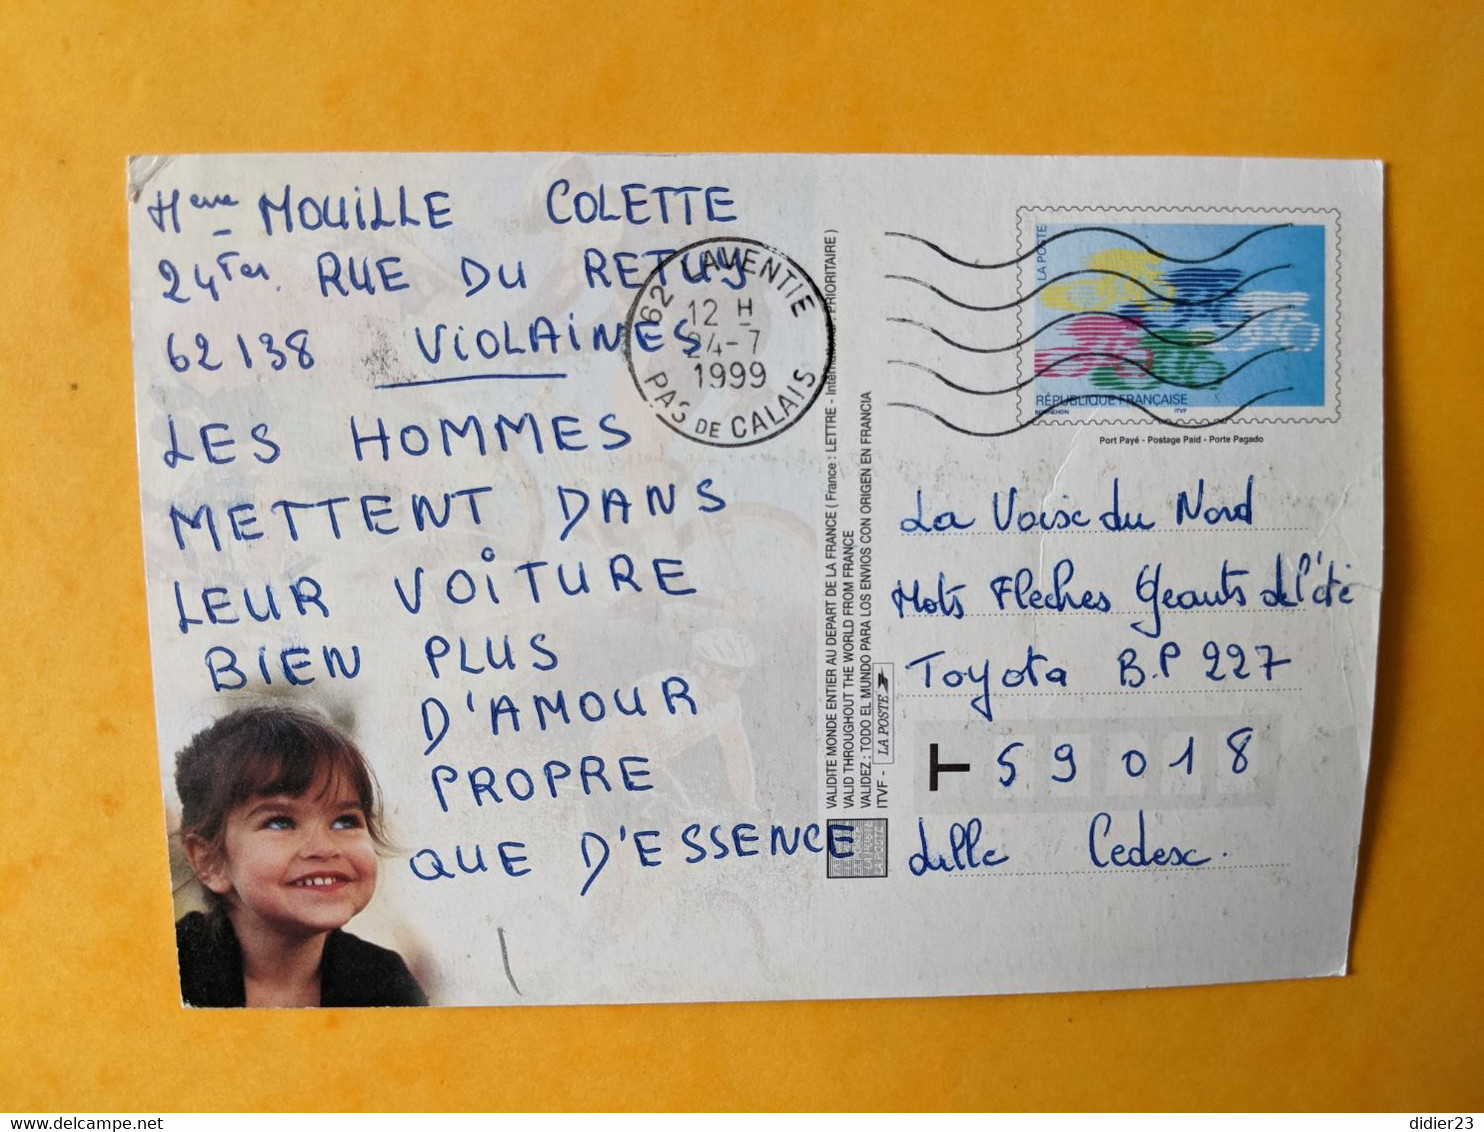 Mme MOUILLE COLETTE
24 Ter. RUE DU RETUY
62138 VIOLAINES
LES HOMMES
METTENT DANS
LEUR VOITURE
BIEN PLUS
D'AMOUR
PROPRE
QUE D'ESSENCE
62 LAVENTIE
12 H
24-7
1999
PAS DE CALAIS
VALIDITE MONDE ENTIER AU DEPART DE LA FRANCE ( France : LETTRE - PRIORITAIRE )
VALID THROUGHOUT THE WORLD FROM FRANCE
VALIDEZ : TODO EL MUNDO PARA LOS ENVIOS CON ORIGEN EN FRANCIA
ITVF - LA POSTE
LA POSTE
RÉPUBLIQUE FRANÇAISE
ITVF
Port Payé - Postage Paid - Porte Pagado
La Voix du Nord
Mots Fleches Geants de l'été
Toyota B.P 227
T 59018
Lille Cedex.
LA POSTE
didier23